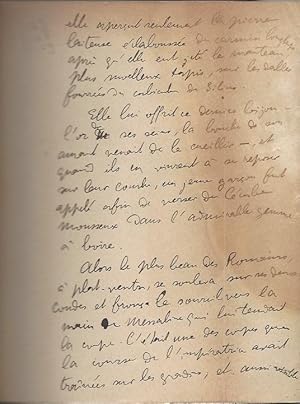 elle aperçut seulement la pierre
laiteuse éclaboussée du carmin
après qu'elle eut jeté le manteau
plus moelleux tapis, sur les dalles
fourrées du
Elle lui offrit ce dernier bijou —
l'or de ses seins, la bouche de son
amant venait de le cueillir —, et
quand ils en vinrent à se reposer
sur leur couche, un jeune garçon fut
appelé afin de verser du Cécube
mousseux dans l'admirable gemme
à boire.
Alors le plus beau des Romains,
à plat-ventre, se souleva sur ses deux
coudes et fronça le sourcil vers la
main de Messaline qui lui tendait
la coupe. C'était une des coupes que
la course de l'impératrice avait
traînées sur les gradins, et aussi